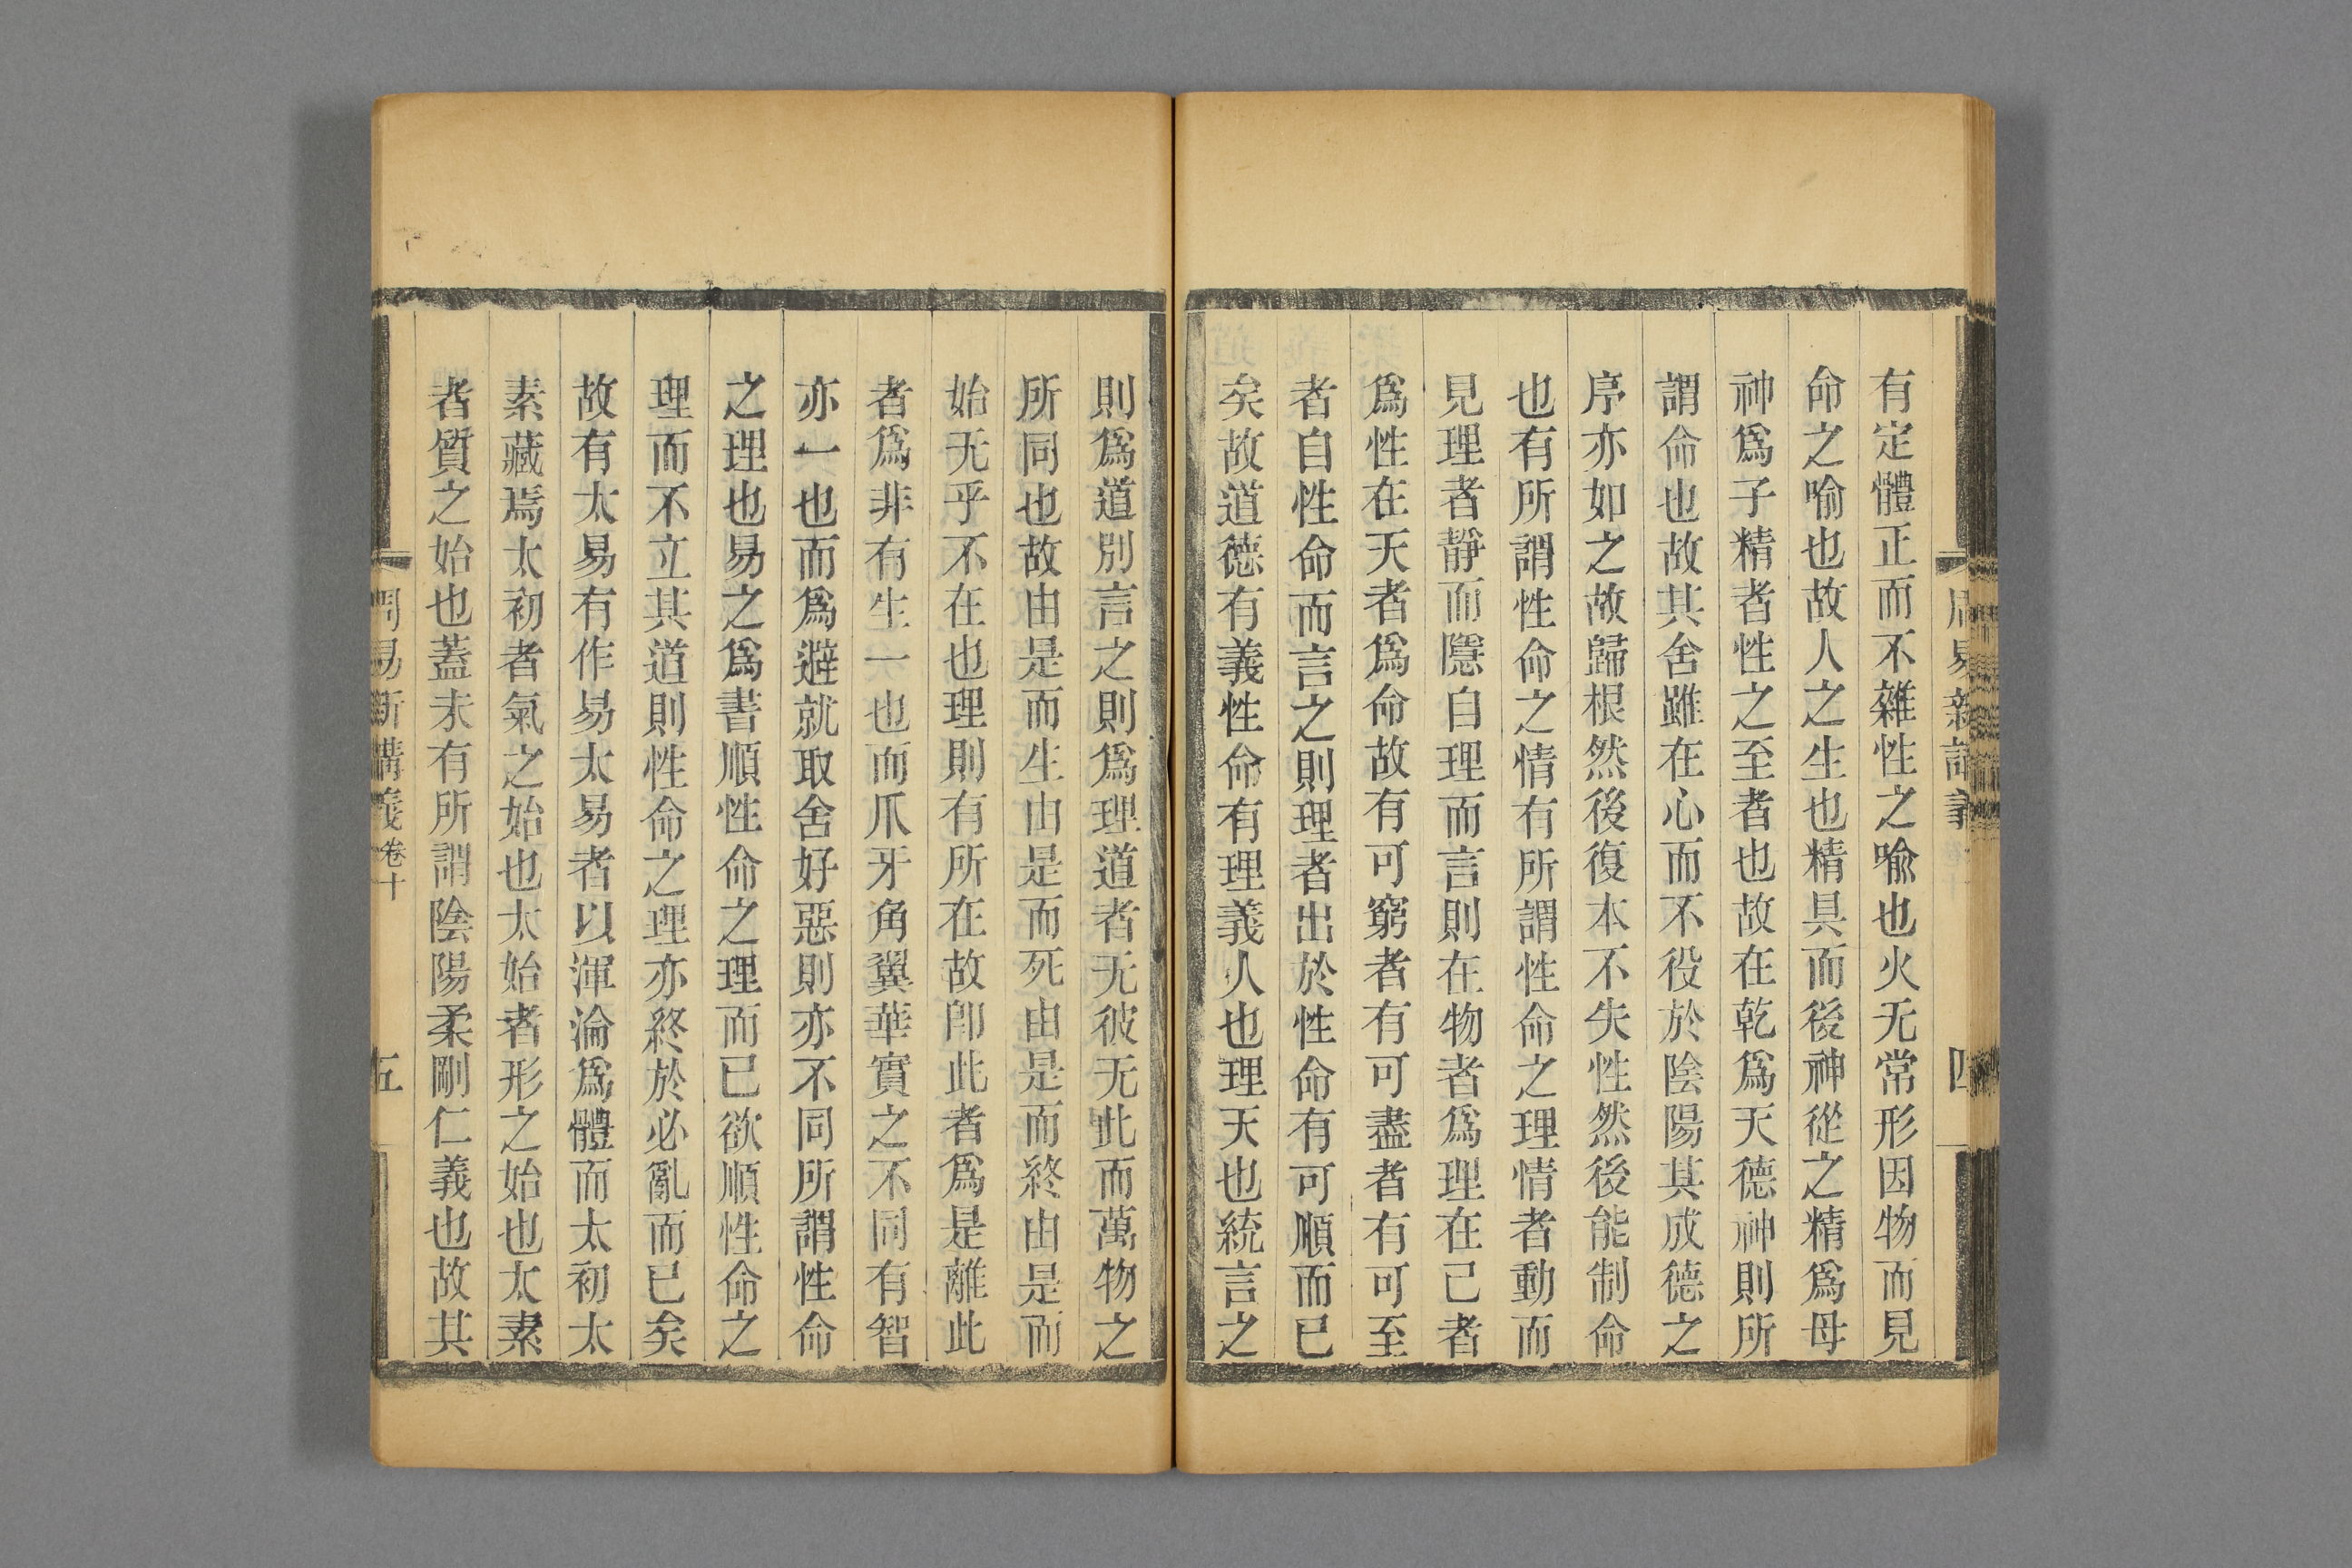 有定體正而不雜性之喻也火无常形因物而見
命之喻也故人之生也精具而後神從之精爲母
神爲子精者性之至者也故在乾爲天德神則所
謂命也故其舍雖在心而不役於陰陽其成德之
序亦如之故歸根然後復本不失性然後能制命
也有所謂性命之情有所謂性命之理情者動而
見理者靜而隱自理而言則在物者爲理在己者
爲性在天者爲命故有可窮者有可盡者有可至
者自性命而言之則理者出於性命有可順而已
矣故道德有義性命有理義人也理天也統言之
則爲道別言之則爲理道者无彼无此而萬物之
所同也故由是而生由是而死由是而終由是而
始无乎不在也理則有所在故卽此者爲是離此
者爲非有生一也而爪牙角翼華實之不同有智
亦一也而爲避就取舍好惡則亦不同所謂性命
之理也易之爲書順性命之理而已欲順性命之
理而不立其道則性命之理亦終於必亂而已矣
故有太易有作易太易者以渾淪爲體而太初太
素藏焉太初者氣之始也太始者形之始也太素
者質之始也蓋未有所謂陰陽柔剛仁義也故其
周易新講義卷十
五